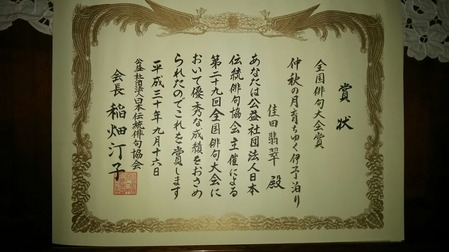 賞状
全国俳句大会賞
仲秋の月育ちゆく伊予泊り
佳田翡翠 殿
あなたは公益社団法人日本
伝統俳句協会主催による
第二十九回全国俳句大会に
おいて優秀な成績をおさめ
られたのでこれを賞します
平成三十年九月十六日
公益社団法人日本伝統俳句協会
会長 稲畑汀子